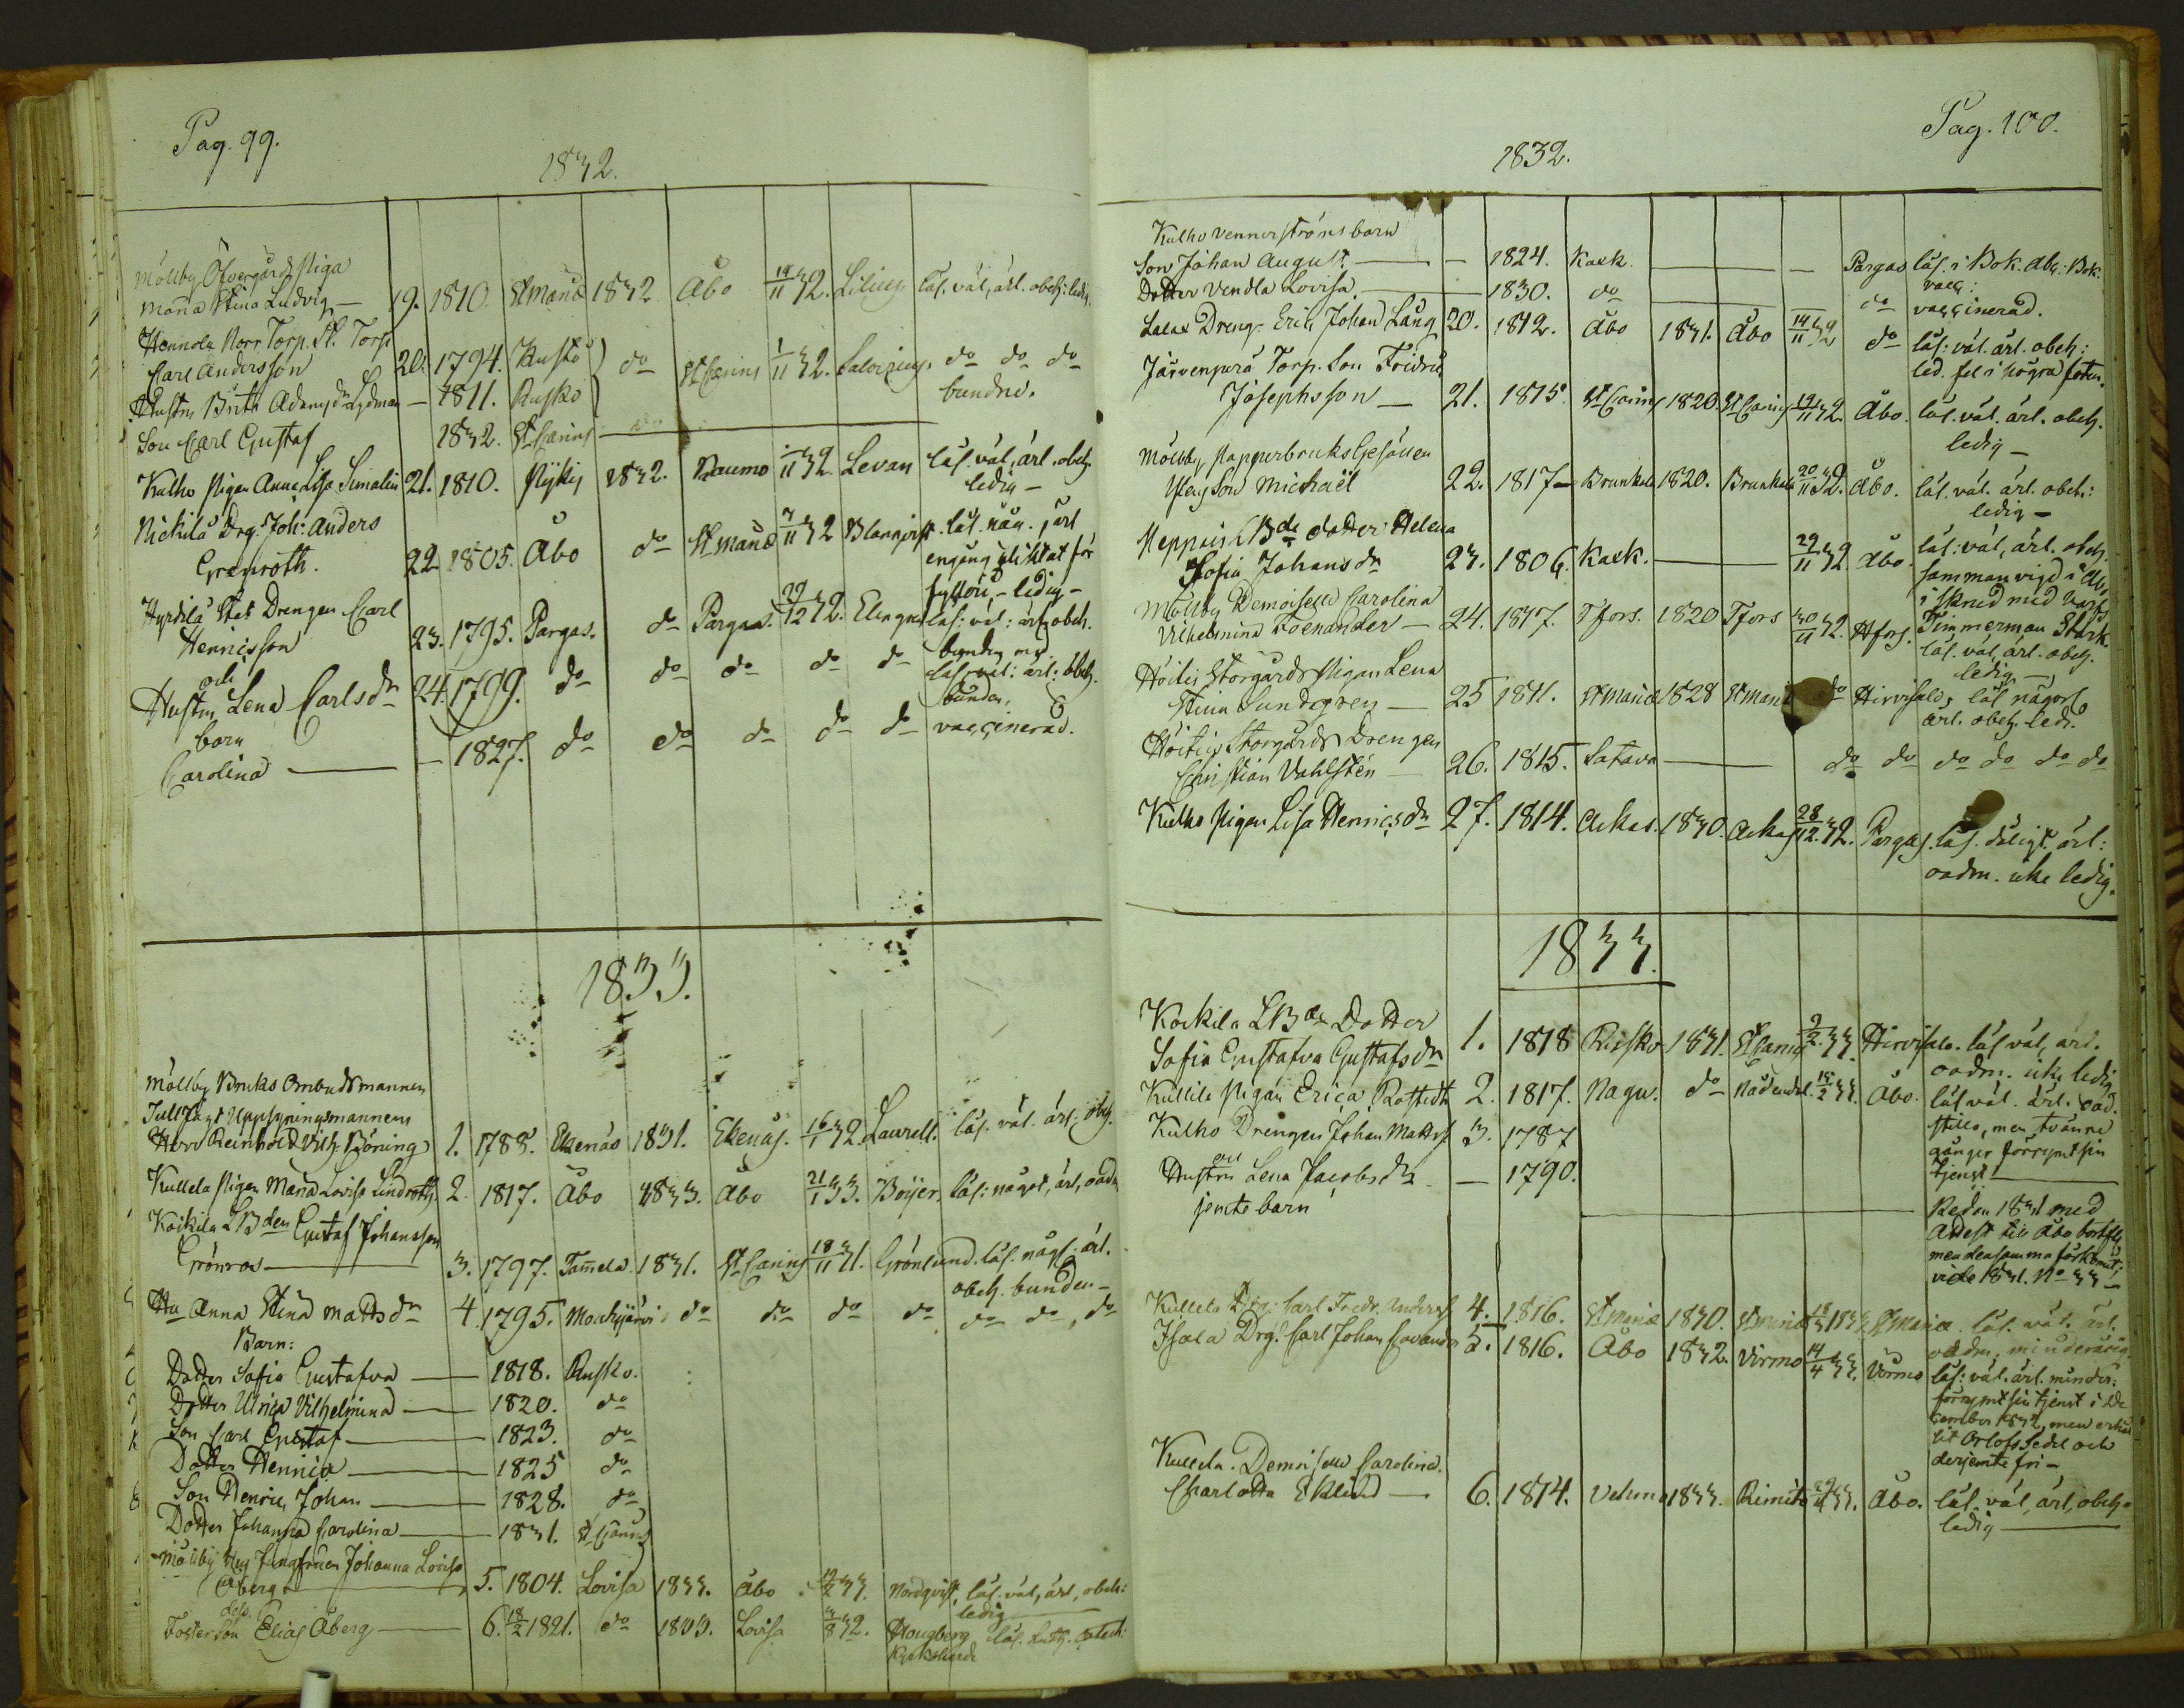 Pag. 99.
1832.
Möllby Öfvergårds Piga
Maria Stina Ludvig — 19. 1810. St Mariæ 1832 Åbo 14/11 32. Lilius läs. väl, ärl. obeh: ledig,
Hennola Norr Torp. St. Torp
Carl Andersson 20. 1794. Kustö do St Carins 1/11 32. do do do
Hustru Brita Adamsdr — 1811. Rusko bunden.
Son Carl Gustaf 1832. St Carins
Kulho Pigan Anna Lisa Simalin 21. 1810. Nykij 1832. Raumo Levan läs. väl, ärl. obeh.
ledig —
Nickilä Drg. Joh: Anders
Granroth. 22 1805. Åbo do St Mariæ 7/11 32 Blanqvist. läs. någ. ärl
engång pliktat för
fylleri, — ledig —
Hyrdilä Drengen Carl
Hennisson 23. 1795. Pargas. do Pargas. 29/12 32. Elingius läs: väl: ärl obeh.
och
Hustru Lena Carlsdr 24. 1799. do do do do do läs. väl: ärl: obeh.
bunden.
barn
Carolina — 1827. do do do do do vaccinerad.
1833.
Möllby Bruks Ombudsmannen
Tull Uppsyningsmannen
Herr Reinhold Vilh. Böning 1. 1788. Ekenäs 1831. Ekenäs. 16/1 32. Laurell. läs. väl. ärl. obeh.
Kullela Pigan Maria Lovisa Lindroth. 2. 1817. Åbo 1833. Åbo 21/1 33. Boijer. läs: något, ärl, oadm
Koikila LBden Gustaf Johansson
Grönroos 3. 1797. Tamela. 1831. St Carins 18/11 31. Grönlund. läs. någt. ärl.
obeh. bunden —
Hu Anna Stina Mattsdr 4. 1795. Mouhijärvi do do do do do do do
Barn:
Dotter Sofia Gustafva — 1818. Rusko.
Dotter Ulrica Vilhelmina — 1820. do
Son Carl Gustaf — 1823. do
Dotter Hennica — 1825 do
Son Henric Johan — 1828. do
Dotter Johanna Carolina — 1831. St Carins
Möllby Jungfrun Johanna Lovisa
Åberg 5. 1804. Lovisa 1833. Åbo 19/2 33. Nordqvist, läs. väl, ärl, obeh:
ledig
dess.
Foster son Elias Åberg — 6. 18/2 1821. do 1833. Lovisa 3/8 32. Hougberg läs. Luth. Catech:
Kyrkoherde
Pag. 100.
1832.
Kulho Vennerströms barn
Son Johan August. — 1824. Kaek. — Pargas läs. i Bok. Abc: Bok.
vacc:
Dotter Vendla Lovisa — 1830. do do vaccinerad.
Lalax Dreng. Eric Johan Lång 20. 1812. Åbo 1831. Åbo 14/11 32 do läs: väl. ärl. obeh:
led. fel i högra foten.
Järvenperä Torp. Son Fredric
Josephsson — 21. 1815. St Carins 1820. St Carins 19/11 32. Åbo. läs. väl. ärl. obeh.
ledig —
Möllby Pappersbruks Gesällen
Son Michaël 22. 1817 — Brunkala 1820. Brunkala 20/11 32. Åbo. läs. väl. ärl. obeh:
ledig —
Heppais LBds dotter Helena
Sofia Johansdr 23. 1806. Kaek. 29/11 32 Åbo. läs: väl, ärl. obeh.
sammanvigd i Åbo
Timmerman Stark.
Möllby Demoiselle Carolina
Vilhelmina Foenander — 24. 1817. Tfors. 1820 Tfors 30/11 32. Hfors. läs. väl, ärl. obeh.
ledig —
Höitis Storgårds Pigan Lena
Stina Sundegren — 25 1811. St Mariæ 1828 St Mariæ do Hirvisalo, läs någorl
ärl. obeh. led.
Höitis Storgårds Drengen
Christian Vahlstén — 26. 1815. Satava do do do do do do
Kulho Pigan Lisa Hennicsdr 27. 1814. Askas. 1830. Askas 28/12. 32. Pargas. läs. dåligt, ärl:
oadm. icke ledig.
1833.
Koikila LBds Dotter
Sofia Gustafva Gustafsdr 1. 1818 Rusko 1831. St Carins 9/2 33. Hirvisalo. läs väl, ärl.
oadm. icke ledig
Kullila Pigan Erica Rostedt 2. 1817. Nagu. do Nådendal. 15/2 33. Åbo. läs väl. ärl. oad.
stilla, men tvänne
gånger förrymt sin
tjenst
Kulho Drengen Johan Matts. 3. 1787
och
Hustru Lena Jacobsdr — 1790.
jemte barn
Redan 1831 med
Attest till Åbo bortfl.
men densamma förkommit;
vide 1831. No 33 —
Kullela Drg: Carl Fredr. Anders. 4. 1816. St Mariæ 1830. St Mariæ 18/3 1833 St Mariæ. läs. väl. ärl.
oadm. minderårig
Isala Drg. Carl Johan 5. 1816. Åbo 1832. Virmo 14/4 33. Virmo läs: väl. ärl. minder:
förrymt sin tjenst i De
cember 1832, men erhål
lit Orlofs Sedel och
derjemte fri —
Kullela. Demoiselle Carolina.
Charlotta Eklund — 6. 1814. Vehmo 1833. Rimito 33. Åbo. läs. väl, ärl, obeh.
ledig